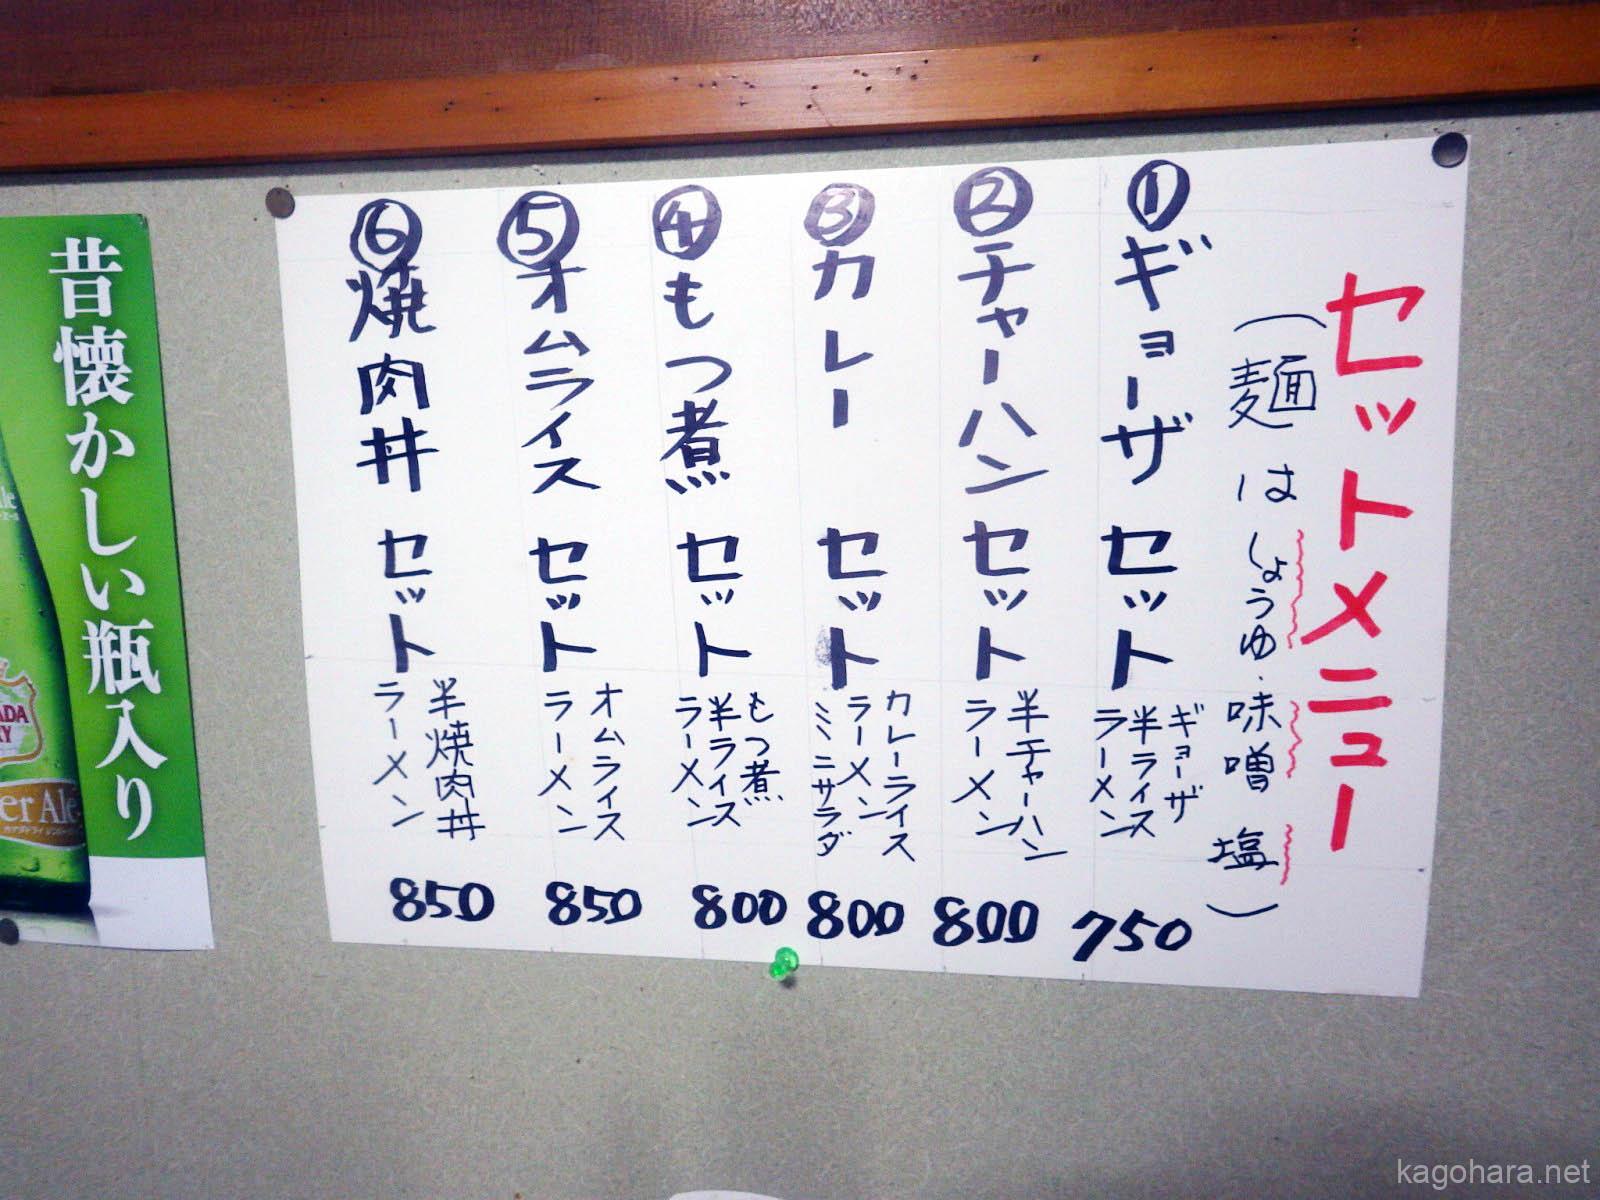 セットメニュー
(麺はしょうゆ・味噌 塩)
①ギョーザセット
ギョーザ
半ライス
ラーメン
750
②チャーハンセット
半チャーハン
ラーメン
800
③カレーセット
カレーライス
ラーメン
ミニサラダ
800
④もつ煮セット
もつ煮
半ライス
ラーメン
800
⑤オムライスセット
オムライス
ラーメン
850
⑥焼肉丼セット
半焼肉丼
ラーメン
850
昔懐かしい瓶入り
er Ale
kagohara.net